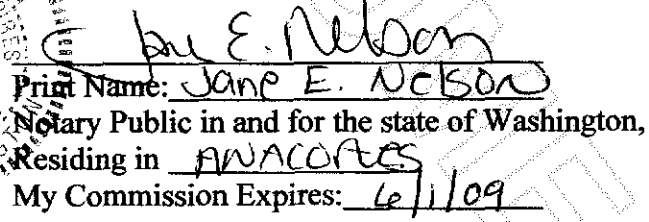 Jane E. Nelson
Print Name: Jane E. Nelson
Notary Public in and for the state of Washington,
Residing in ANACORTES
My Commission Expires: 6/1/09